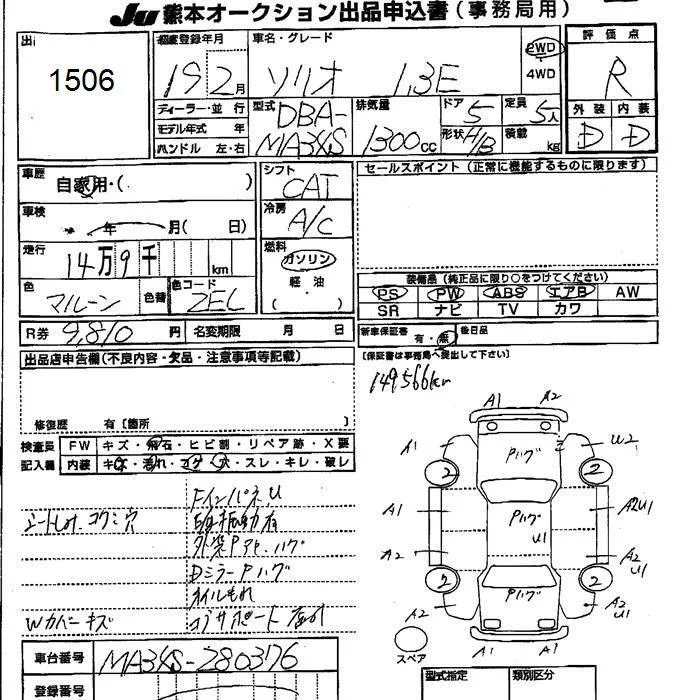 JU 熊本オークション出品申込書(事務局用)
出
1506
初度登録年月
19 2月
車名・グレード
ソリオ 1.3E
2WD
・
4WD
評価点
R
ディーラー・並 行
モデル年式 年
ハンドル 左・右
型式
DBA-
MA34S
排気量
1300cc
ドア 5
形状 H/B
定員 5人
積載 kg
外装 内装
D D
車歴
自家用・( )
シフト
CAT
セールスポイント(正常に機能するものに限ります)
車検
年 月( 日)
冷房
A/C
走行
14万9千 km
燃料
ガソリン
軽・油
( )
色
マルーン
色替
色コード
ZEL
装備品(純正品に限り○をつけてください)
PS PW ABS エアB AW
SR ナビ TV カワ
R券 9,810 円 名変期限 月 日
新車保証書 有・無 後日品
(保証書は事務局へ提出して下さい)
出品店申告欄(不良内容・欠品・注意事項等記載)
149566km
修復歴 有〔箇所
検査員
記入欄
FW キズ・飛石・ヒビ割・リペア跡・X要
内装 キズ・汚れ・コゲ・穴・スレ・キレ・破レ
FインパネU
シートしみ、コゲ穴
外装Pアセ、ハゲ
DミラーPハゲ
オイルもれ
Wカバーキズ
コアサポート
A1 A2
A1 Pハゲ U2
2 2
A1 Pハゲ U1 A2U1
A2 A2 U1
2 2
A2 Pハゲ A2 U1
A1 A1
スペア
車台番号 MA34S-280376
登録番号
型式指定 類別区分